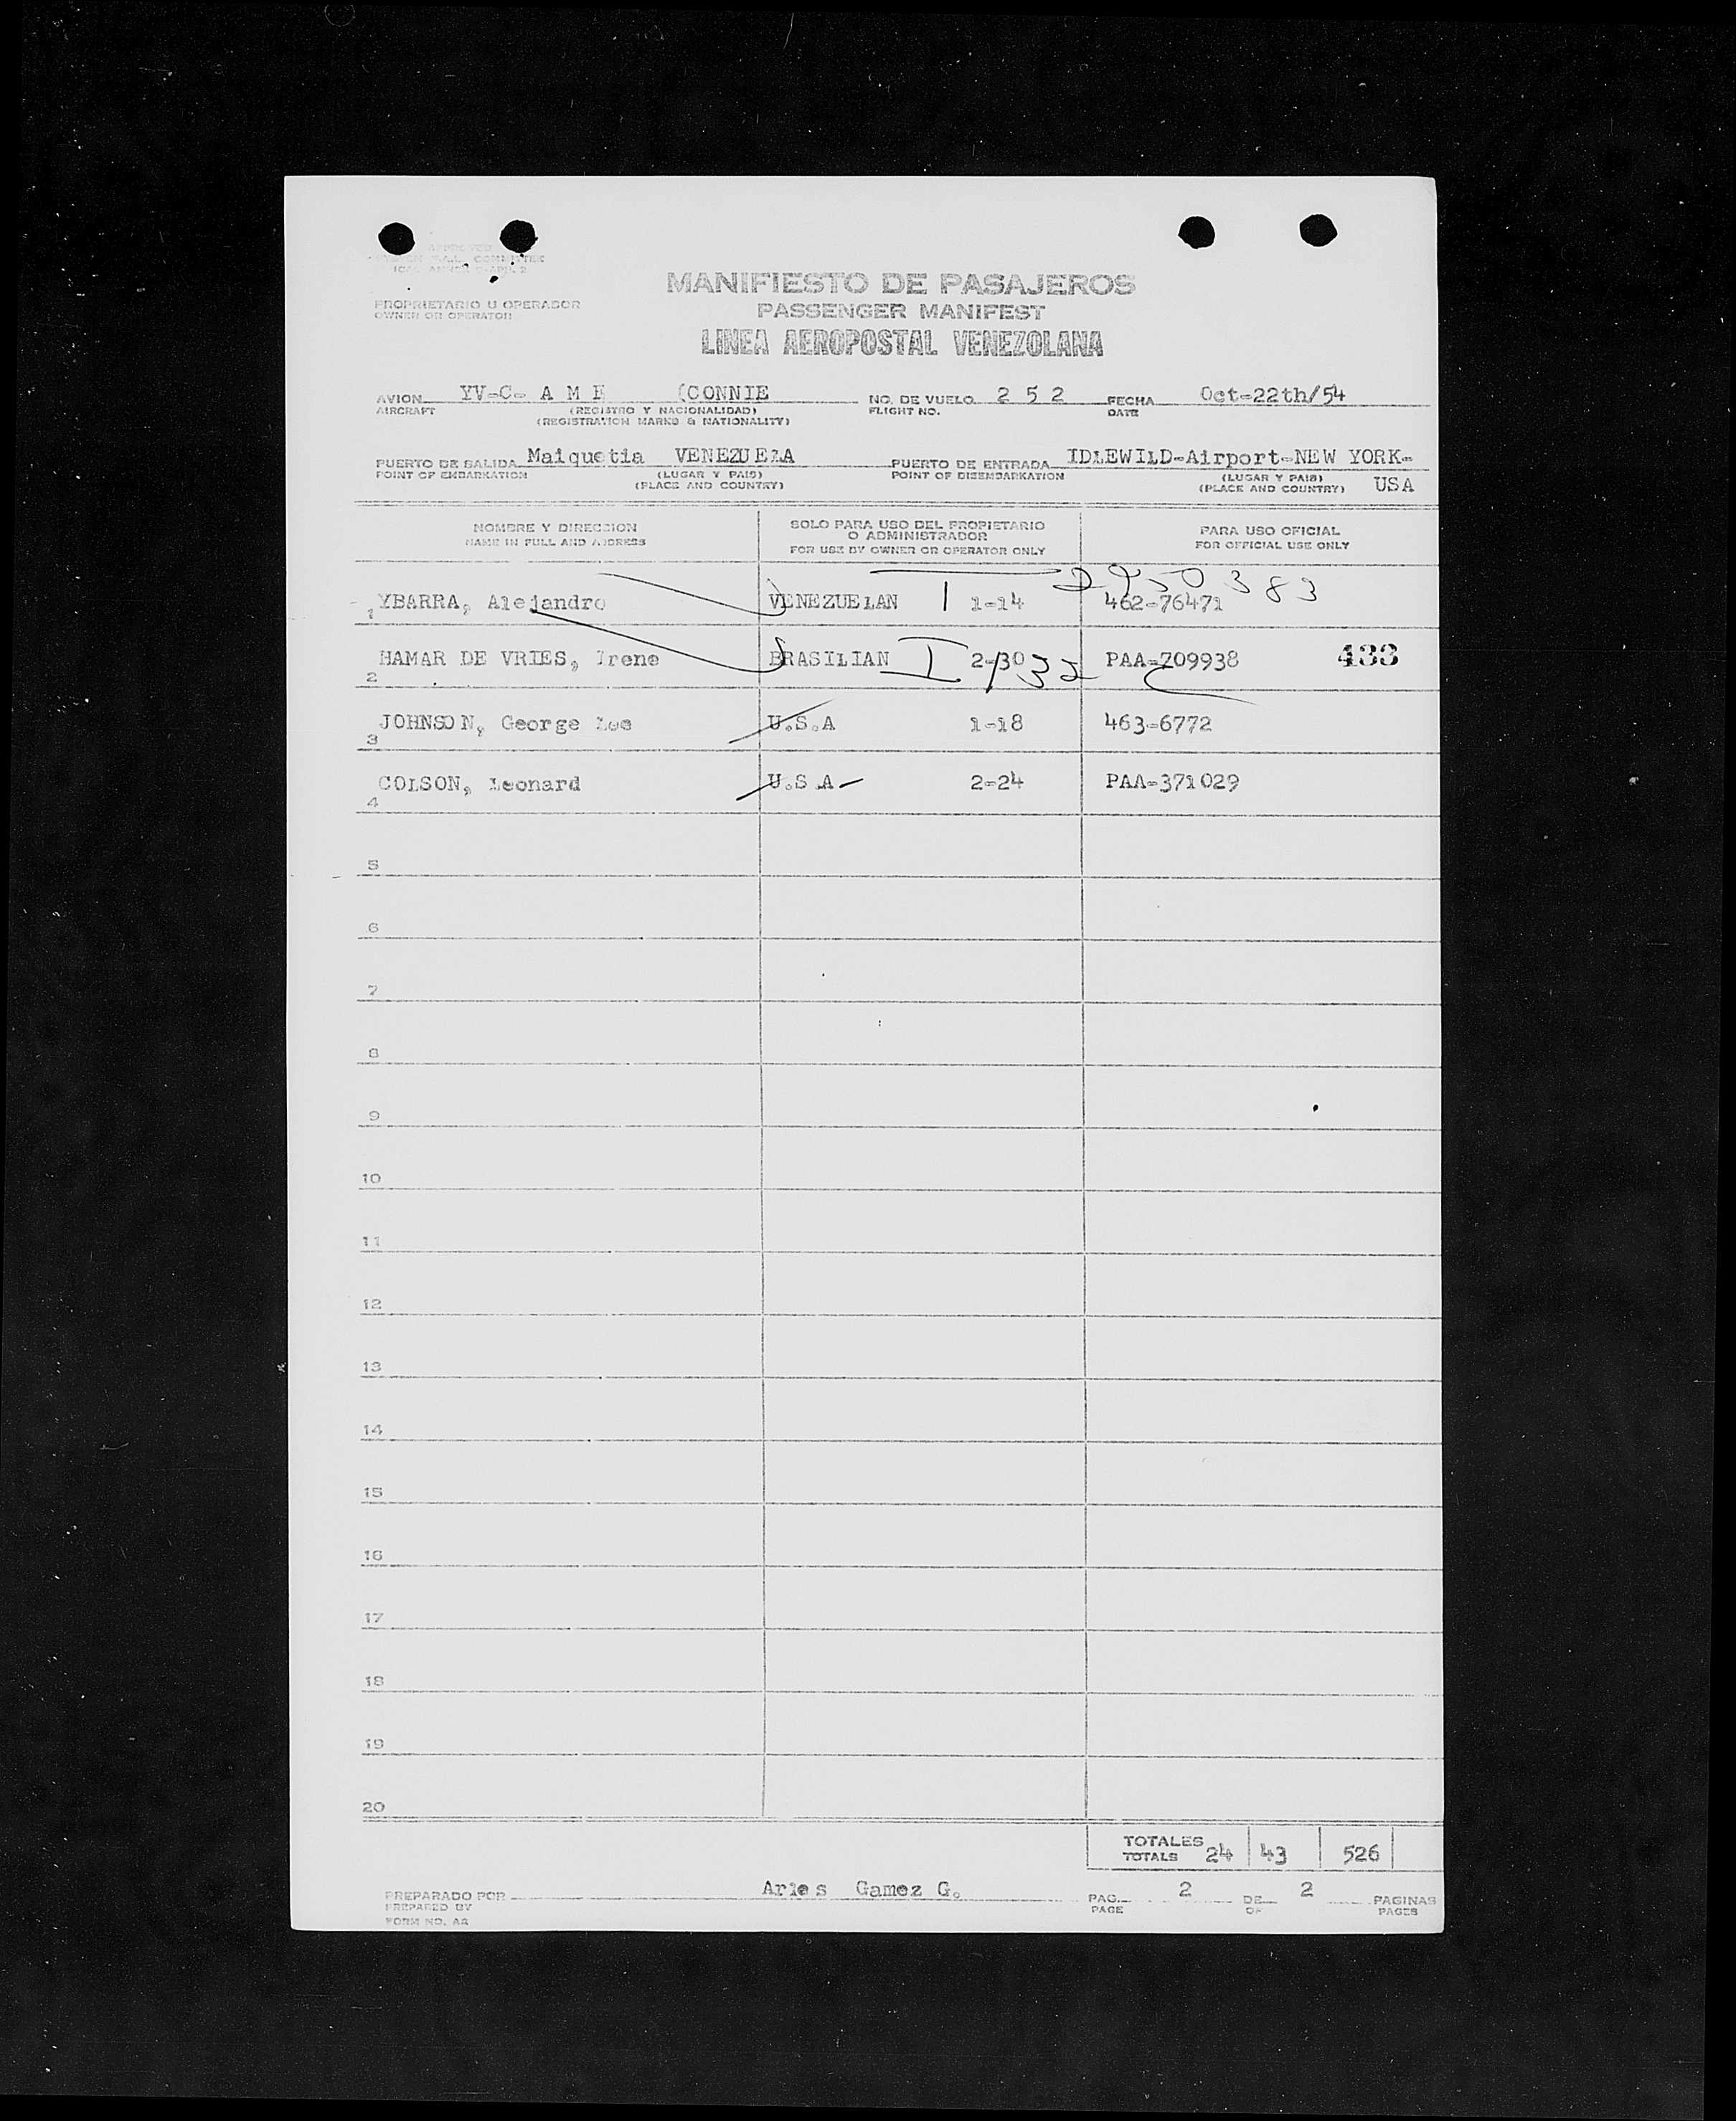 MANIFIESTO DE PASAJEROS
PASSENGER MANIFEST
LINEA AEROPOSTAL VENEZOLANA
PROPRIETARIO U OPERADOR
OWNER OR OPERATOR
AVION YV-C- A M E (CONNIE NO. DE VUELO 2 5 2 FECHA Oct-22th/54
AIRCRAFT (REGISTRO Y NACIONALIDAD) FLIGHT NO. DATE
(REGISTRATION MARKS & NATIONALITY)
PUERTO DE SALIDA Maiquetia VENEZUELA PUERTO DE ENTRADA IDLEWILD-Airport-NEW YORK-
POINT OF EMBARKATION (LUGAR Y PAIS) POINT OF DISEMBARKATION (LUGAR Y PAIS) USA
(PLACE AND COUNTRY) (PLACE AND COUNTRY)
NOMBRE Y DIRECCION SOLO PARA USO DEL PROPIETARIO PARA USO OFICIAL
O ADMINISTRADOR
NAME IN FULL AND ADDRESS FOR USE BY OWNER OR OPERATOR ONLY FOR OFFICIAL USE ONLY
1 YBARRA, Alejandro VENEZUELAN 1-14 462-76471
2 HAMAR DE VRIES, Irene BRASILIAN I 2-30 PAA-709938 433
3 JOHNSON, George Lee U.S.A 1-18 463-6772
4 COLSON, Leonard U.S.A 2-24 PAA-371029
5
6
7
8
9
10
11
12
13
14
15
16
17
18
19
20
TOTALES
TOTALS 24 43 526
PREPARADO POR Arles Gamez G. PAG. 2 DE 2 PAGINAS
PREPARED BY PAGE OF PAGES
FORM NO. AR